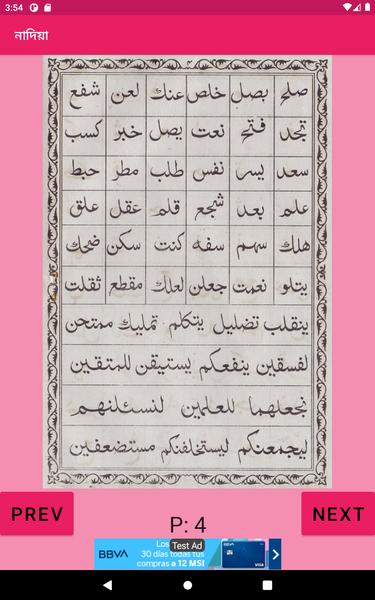 3:54
নাদিয়া
صلح بصل خلص عنك لعن شفع
تجد فتح نعت يصل خبر كسب
سعد يسر نفس طلب مطر حبط
علم بعد شجع قلم عقل علق
هلك سهم سفه كنت سكن ضحك
يتلو نعمت جعلن لعلك مقطع ثقلت
ينقلب تضليل يتكلم تمليك ممتحن
لفسقين ينفعكم يستيقن للمتقين
نجعلهما للعلمين لنسئلنهم
ليجمعنكم ليستخلفنكم مستضعفين
PREV
P: 4
NEXT
Test Ad
BBVA
Los
30 días todas tus
compras a 12 MSI
VISA